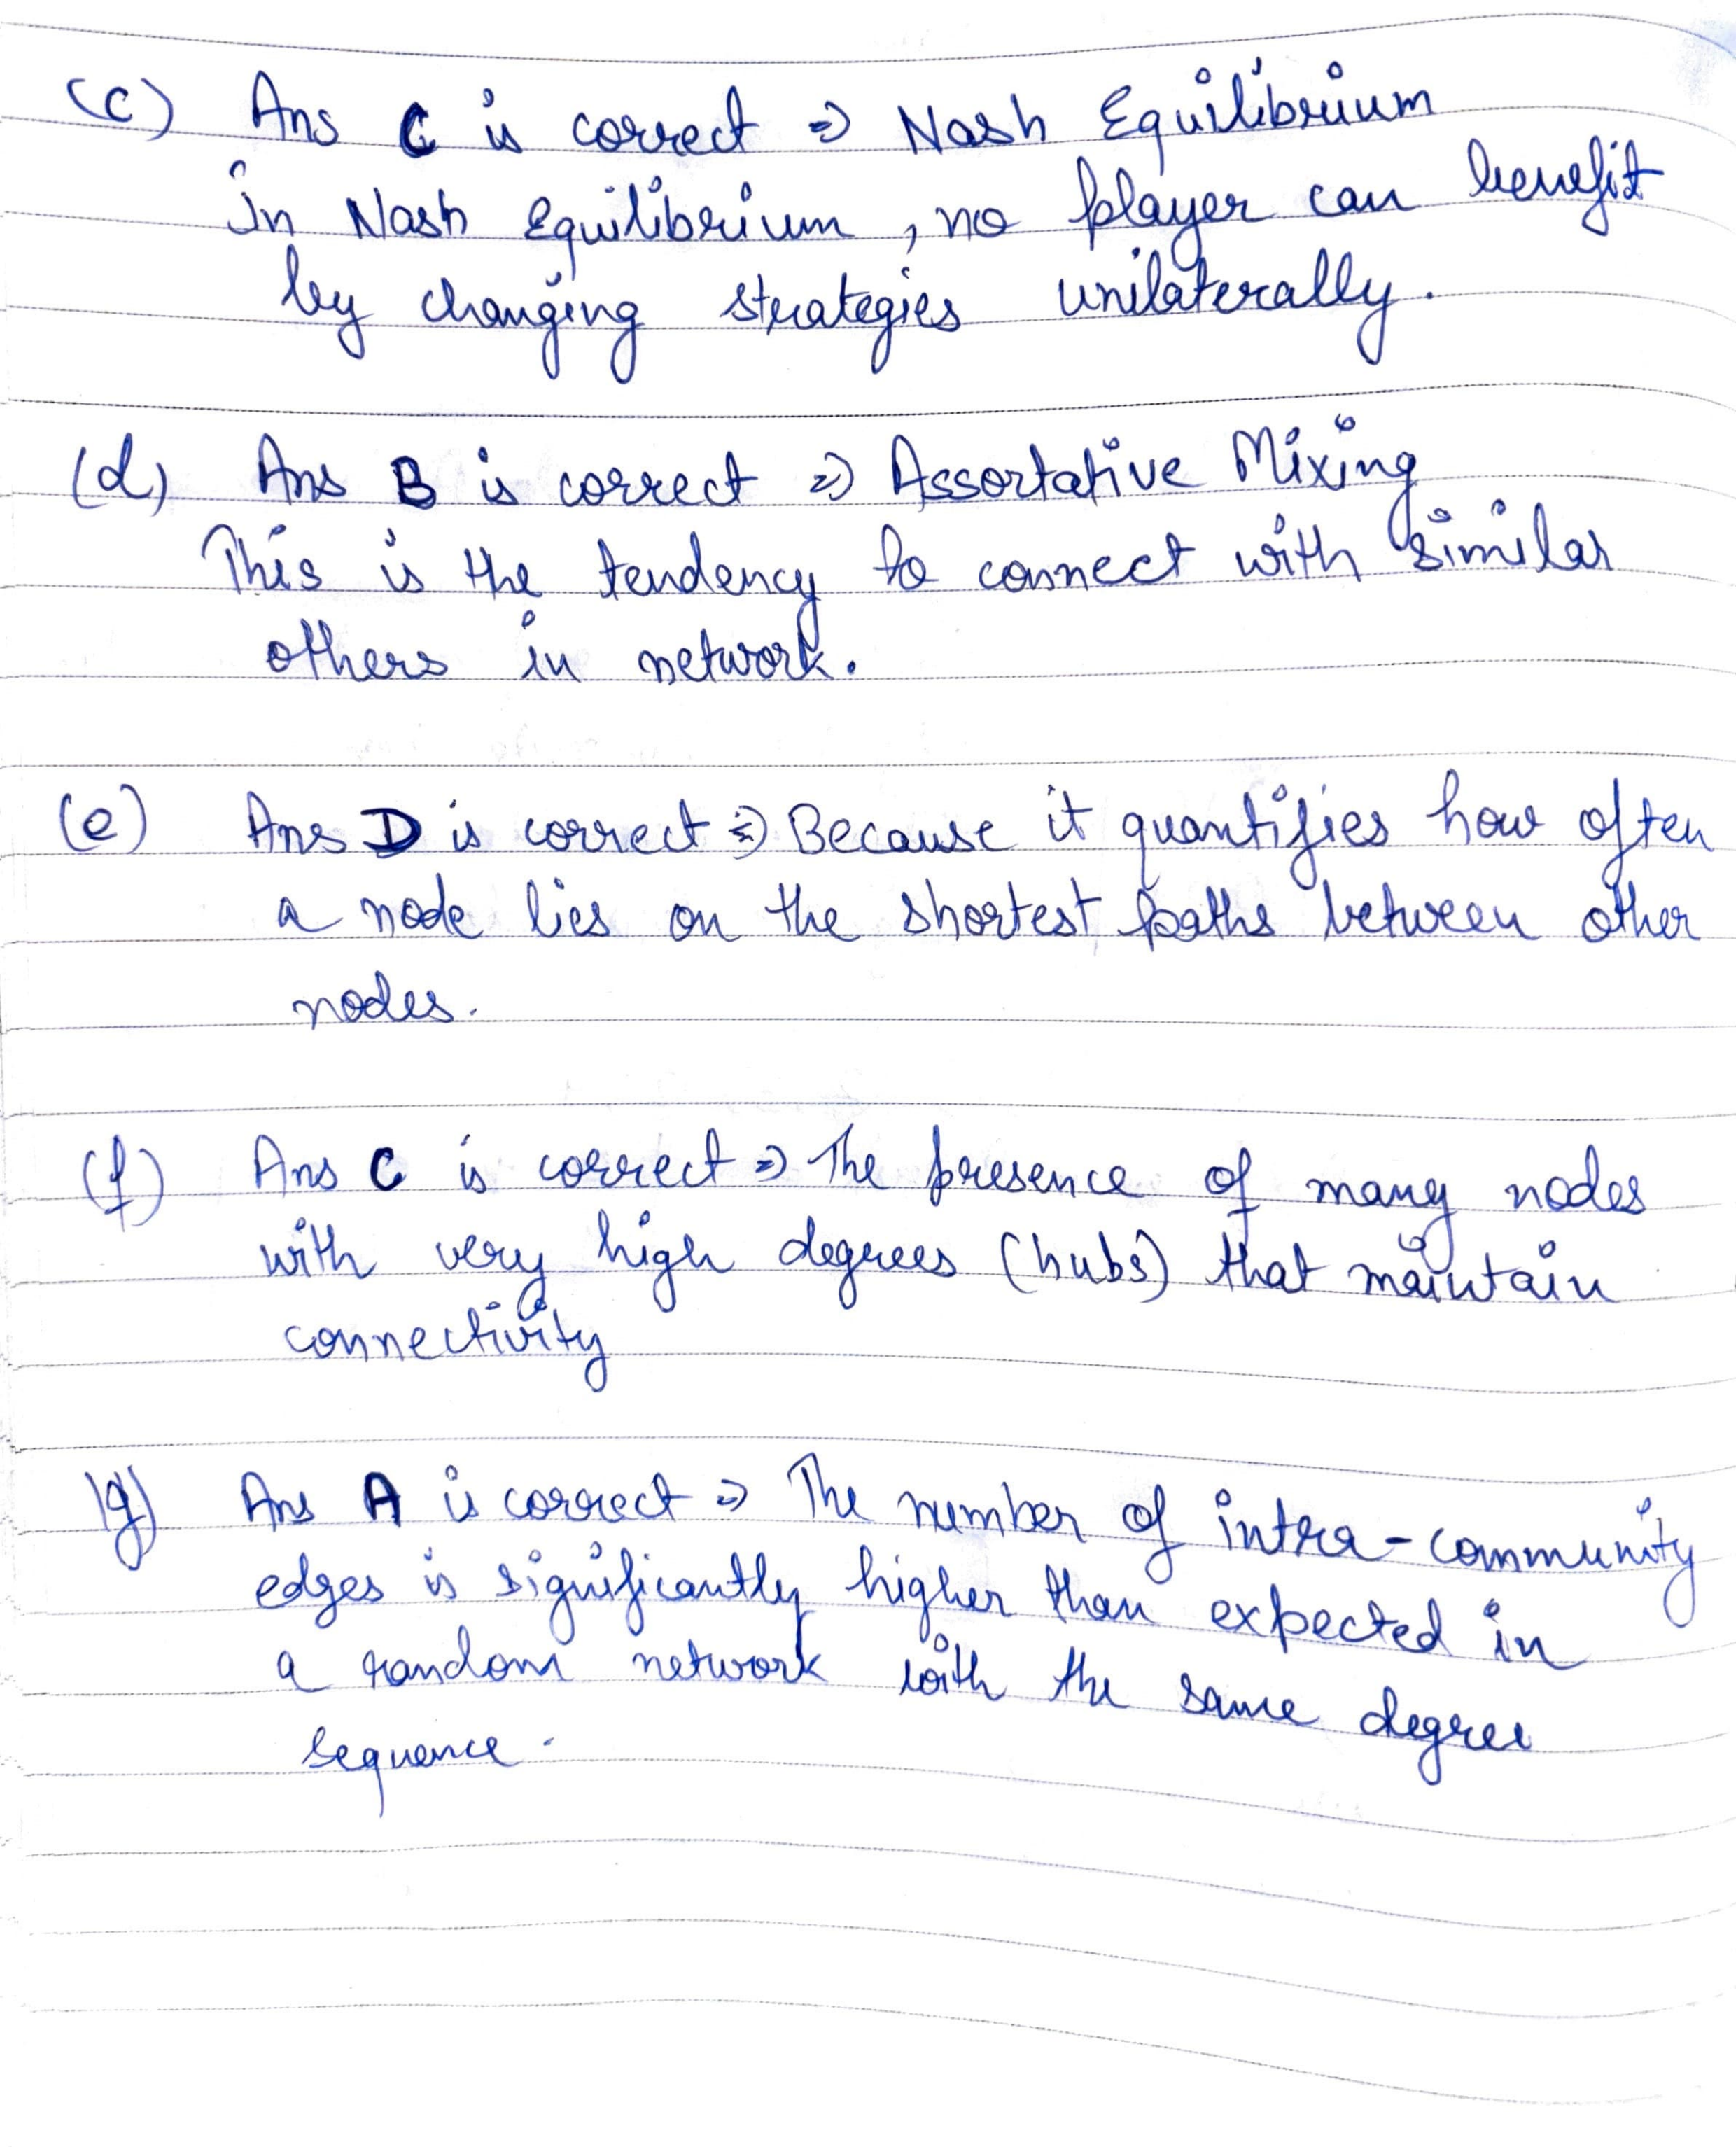 (c) Ans C is correct ⇒ Nash Equilibrium
In Nash Equilibrium, no player can benefit
by changing strategies unilaterally.
(d) Ans B is correct ⇒ Assortative Mixing
This is the tendency to connect with similar
others in network.
(e) Ans D is correct ⇒ Because it quantifies how often
a node lies on the shortest paths between other
nodes.
(f) Ans C is correct ⇒ The presence of many nodes
with very high degrees (hubs) that maintain
connectivity
(g) Ans A is correct ⇒ The number of intra-community
edges is significantly higher than expected in
a random network with the same degree
sequence.